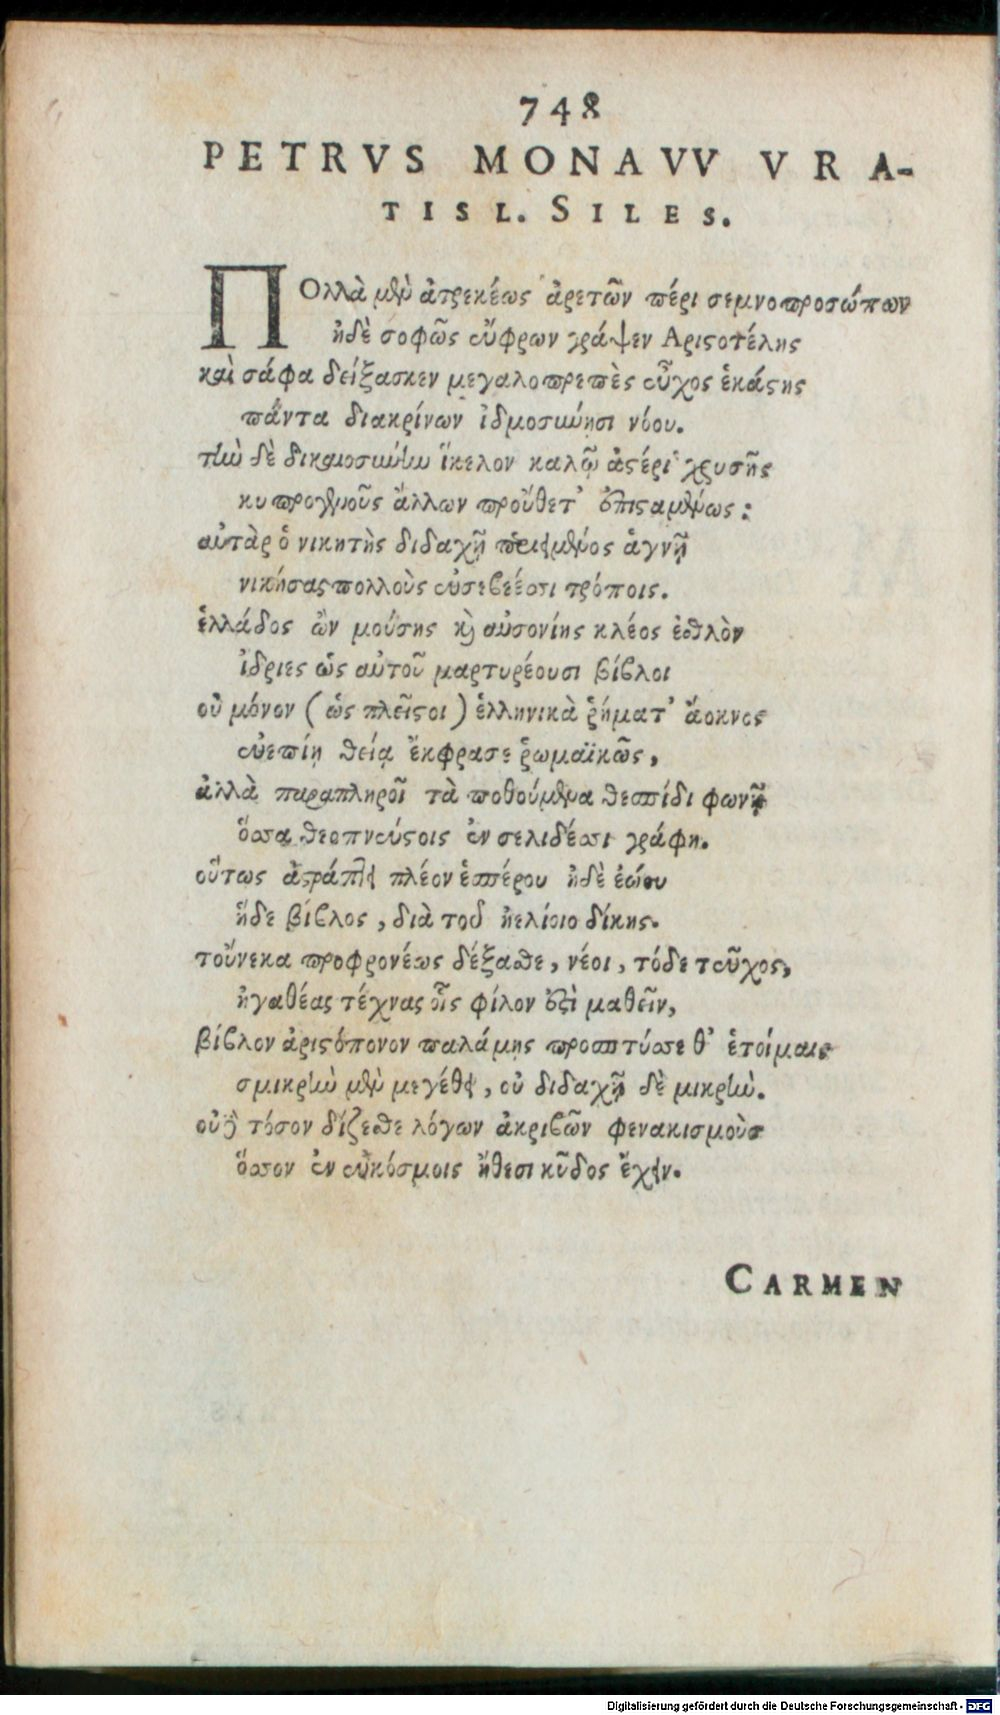 748
PETRVS MONAVV VRA-
TISL. SILES.
ΠΟλλὰ μὲν ἀτρεκέως ἀρετῶν πέρι σεμνοπροσώπων
ἠδὲ σοφῶς εὔφρων γράψεν Αριστοτέλης
καὶ σάφα δείξασκεν μεγαλοπρεπὲς εὖχος ἑκάστης
πάντα διακρίνων ἰδμοσύνησι νόου.
τὴν δὲ δικαιοσύνην ἴκελον καλῷ ἀστέρι χρυσῆς
κυπρογενοῦς ἄλλων προὔθετ' ἐπισταμένως:
αὐτὰρ ὁ νικητὴς διδαχῇ πεπειμένος ἁγνῇ
νικήσας πολλοὺς εὐσεβέεσσι τρόποις.
ἑλλάδος ὢν μούσης καὶ αὐσονίης κλέος ἐσθλὸν
ἴδριες ὡς αὐτοῦ μαρτυρέουσι βίβλοι
οὐ μόνον (ὡς πλεῖστοι) ἑλληνικὰ ῥήματ' ἄοκνος
εὐεπίῃ θείᾳ ἔκφρασε ῥωμαϊκῶς,
ἀλλὰ παραπληροῖ τὰ ποθούμενα θεσπίδι φωνῇ
ὅσσα θεοπνεύστοις ἐν σελιδέσσι γράφη.
οὕτως ἀστράπτει πλέον ἑσπέρου ἠδὲ ἑώου
ἥδε βίβλος, διὰ τοῦ ἠελίοιο δίκης.
τοὔνεκα προφρονέως δέξασθε, νέοι, τόδε τεῦχος,
ἠγαθέας τέχνας οἷς φίλον ἐστὶ μαθεῖν,
βίβλον ἀριστόπονον παλάμης προσπτύσσε θ' ἑτοίμαις
σμικρὴν μὲν μεγέθει, οὐ διδαχῇ δὲ μικρήν.
οὐ γὰρ τόσον δίζεσθε λόγων ἀκριβῶν φενακισμοὺς
ὅσσον ἐν εὐκόσμοις ἤθεσι κῦδος ἔχειν.
CARMEN
Digitalisierung gefördert durch die Deutsche Forschungsgemeinschaft - DFG